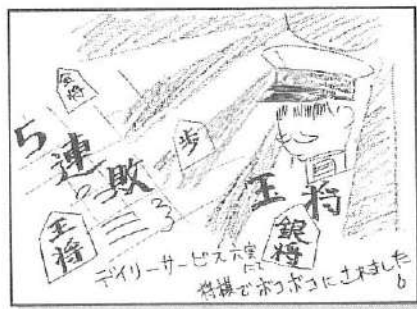 金将
5連敗
歩
王将
銀将
王将
デイリーサービス六実にて
将棋でボコボコにされました